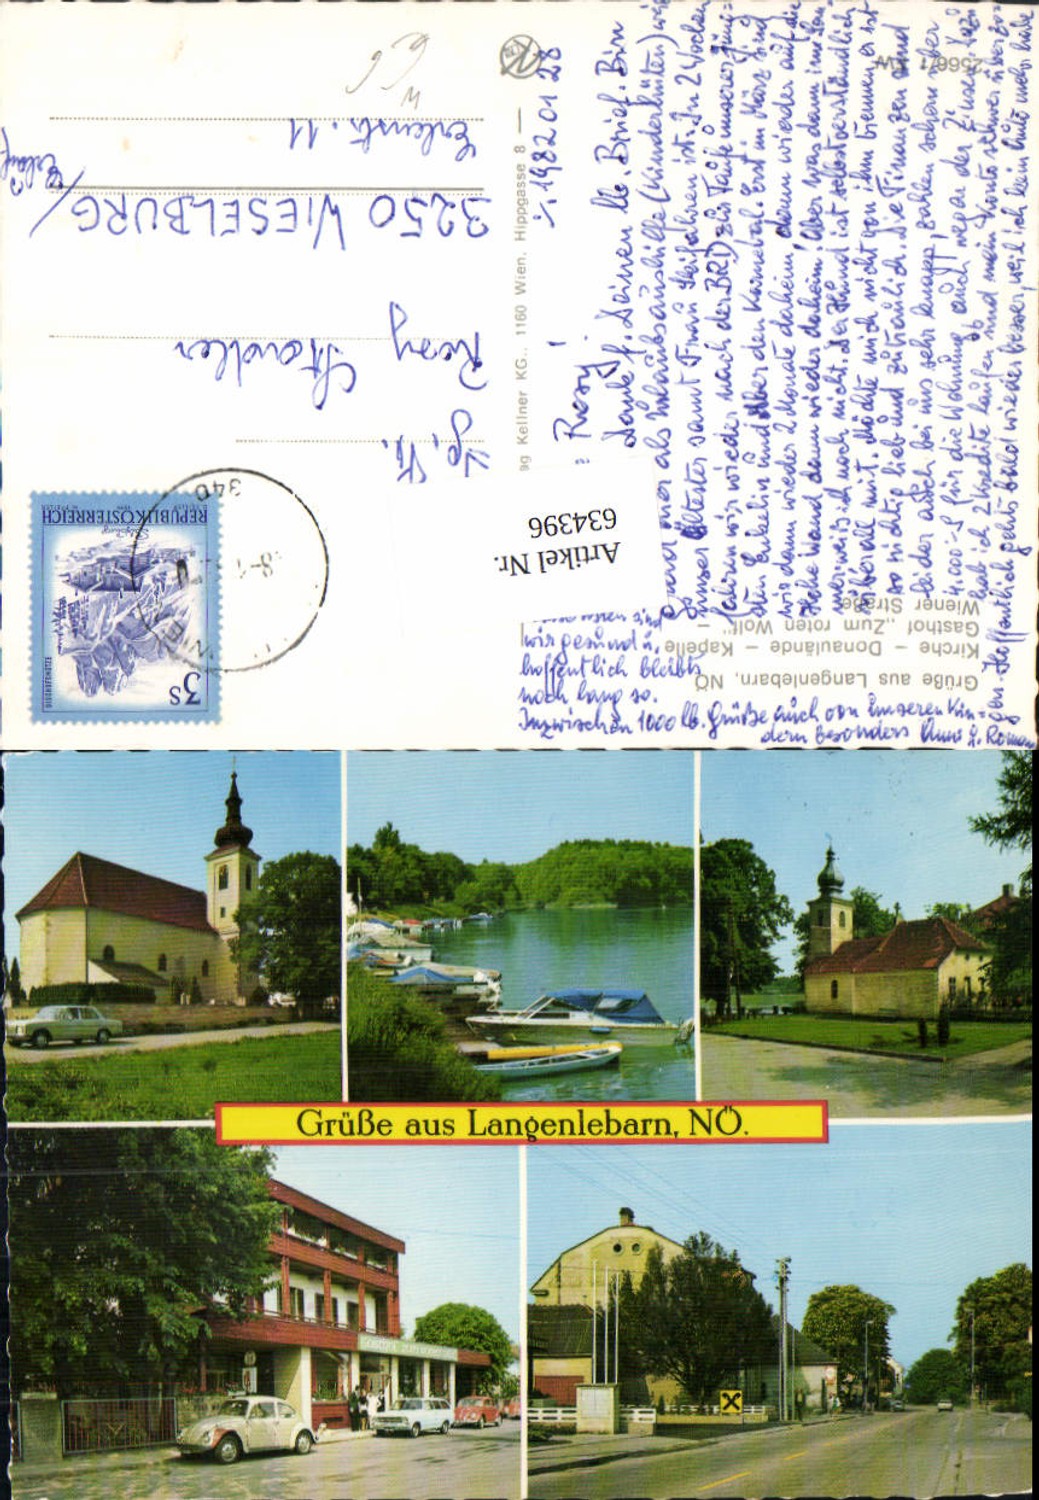 Grüße aus Langenlebarn, NÖ.
Kirche – Donaulände – Kapelle
Gasthof „Zum roten Wolf"
Wiener Straße
2566/1
Kellner KG., 1160 Wien, Hippgasse 8
Artikel Nr.
634396
3S
REPUBLIK ÖSTERREICH
BISCHOFSMÜTZE
340
Rosy Stadler
3250 WIESELBURG/
Erlauf
Erlenstr. 11
1982 01 28
Rosy!
Dank f. Deinen lb. Brief. Bin
immer als Urlaubsaushilfe (Kinderhüten) wie
unser Ältester samt Frau Skifahren ist. In 2 Wochen
fahren wir wieder nach der BRD zur Taufe unserer jüng-
sten Enkelin und über den Karneval. Erst im März sind
wir dann wieder 2 Monate daheim, dann wieder auf die
Hohe Wand dann wieder daheim! Aber was dann im Som-
mer weiß ich noch nicht. Der Hund ist selbstverständlich
überall mit. Möchte mich nicht von ihm trennen er ist
so richtig lieb und zutraulich. Die Finanzen sind
leider auch bei uns sehr knapp, zahlen schon über
4.000.-S für die Wohnung, auch wegen der Zinsen
hab ich 2 Kredite laufen und mein Konto schwer überzo-
gen. Hoffentlich gehts bald wieder besser, weil ich kein Geld mehr habe
sind
wir gesund u.
hoffentlich bleibts
noch lang so.
Inzwischen 1000 lb. Grüße auch von unseren Kin-
dern besonders Anna u. Roman
Grüße aus Langenlebarn, NÖ.